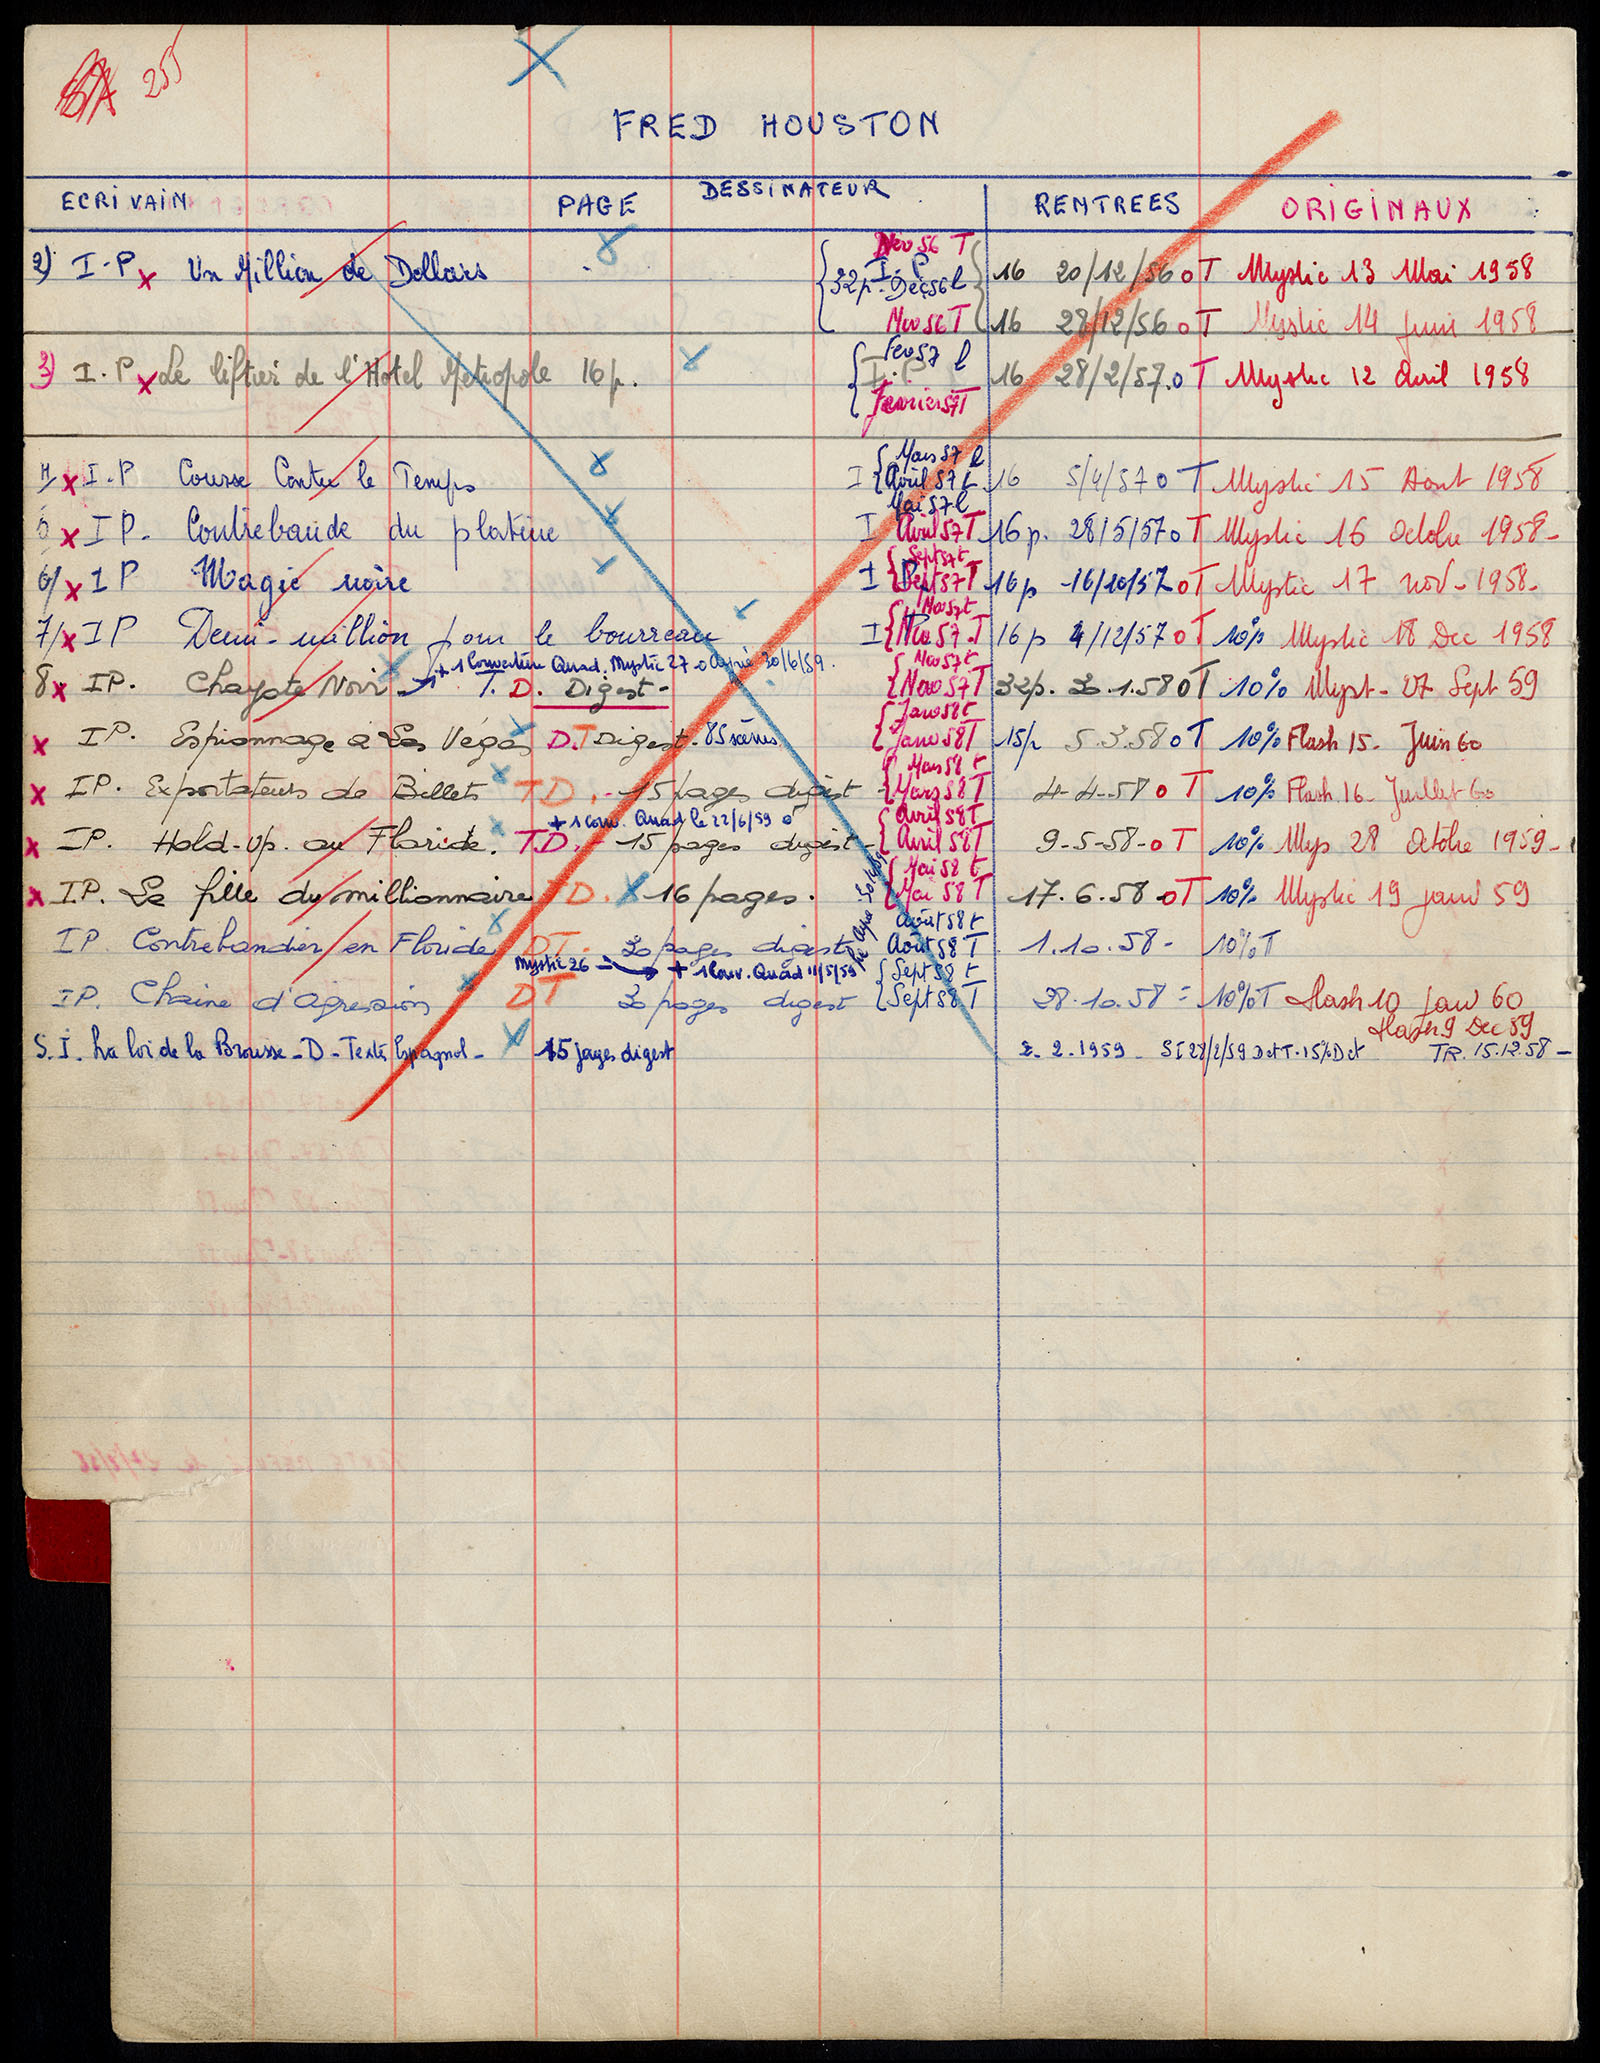 255
FRED HOUSTON
ECRIVAIN PAGE DESSINATEUR RENTREES ORIGINAUX
Nov 56 T
2) I-P x Un Million de Dollars 32p. I.P Dec 56 l 16 20/12/56 o T Mystic 13 Mai 1958
Nov 56 T 16 28/12/56 o T Mystic 14 Juin 1958
Fev 57 l
3) I.P x Le liftier de l'Hotel Metropole 16 p. I.P 16 28/2/57. o T Mystic 12 Avril 1958
Janvier 57 T
Mars 57 l
x I.P Course Contre le Temps I Avril 57 t 16 5/4/57 o T Mystic 15 Aout 1958
Mai 57 l
x I P. Contrebande du platine I Avril 57 T 16 p. 28/5/57 o T Mystic 16 Octobre 1958-
Sept 57 t
6/ x I P Magie noire I Sept 57 T 16 p 16/10/57 o T Mystic 17 nov- 1958-
Nov 57 t
7/ x IP Demi-million pour le bourreau I Nov 57-T 16 p 4/12/57 o T 10% Mystic 18 Dec 1958
+ 1 Couverture Quad. Mystic 27 30/6/59.
Nov 57 t
8 x IP. Chayote Noir T. D. Digest- Nov 57 T 32p. 30.1.58 o T 10% Myst- 27 Sept 59
Janv 58 t
x IP. Espionnage a Las Végas D.T Digest. 85 scènes Janv 58 T 15p 5.3.58 o T 10% Flash 15- Juin 60
Mars 58 t
x IP. Exportateurs de Billets T D.- 15 pages digest- Mars 58 T 4-4-58 o T 10% Flash 16- Juillet 60
+ 1 couv. Quad le 22/6/59 o Avril 58 T
x IP. Hold-Up. au Floride. T.D.- 15 pages digest- Avril 58 T 9-5-58- o T 10% Mys 28 Octobre 1959-
Mai 58 t
x IP. La fille du millionnaire T D. x 16 pages. Mai 58 T 17.6.58 o T 10% Mystic 19 janv 59
Août 58 t
IP. Contrebandier en Floride DT. 30 pages digest Août 58 T 1.10.58- 10% T
Mystic 26 + 1 Couv. Quad 11/5/59 Sept 58 t
IP. Chaine d'agression DT 30 pages digest Sept 58 T 28.10.58 = 10% T Flash 10 Janv 60
Flash 9 Dec 59
S.I. La loi de la Brousse-D-Texte Espagnol- 15 pages digest 2.2.1959- SI 28/2/59 D et T. 15% D et TR. 15.12.58-